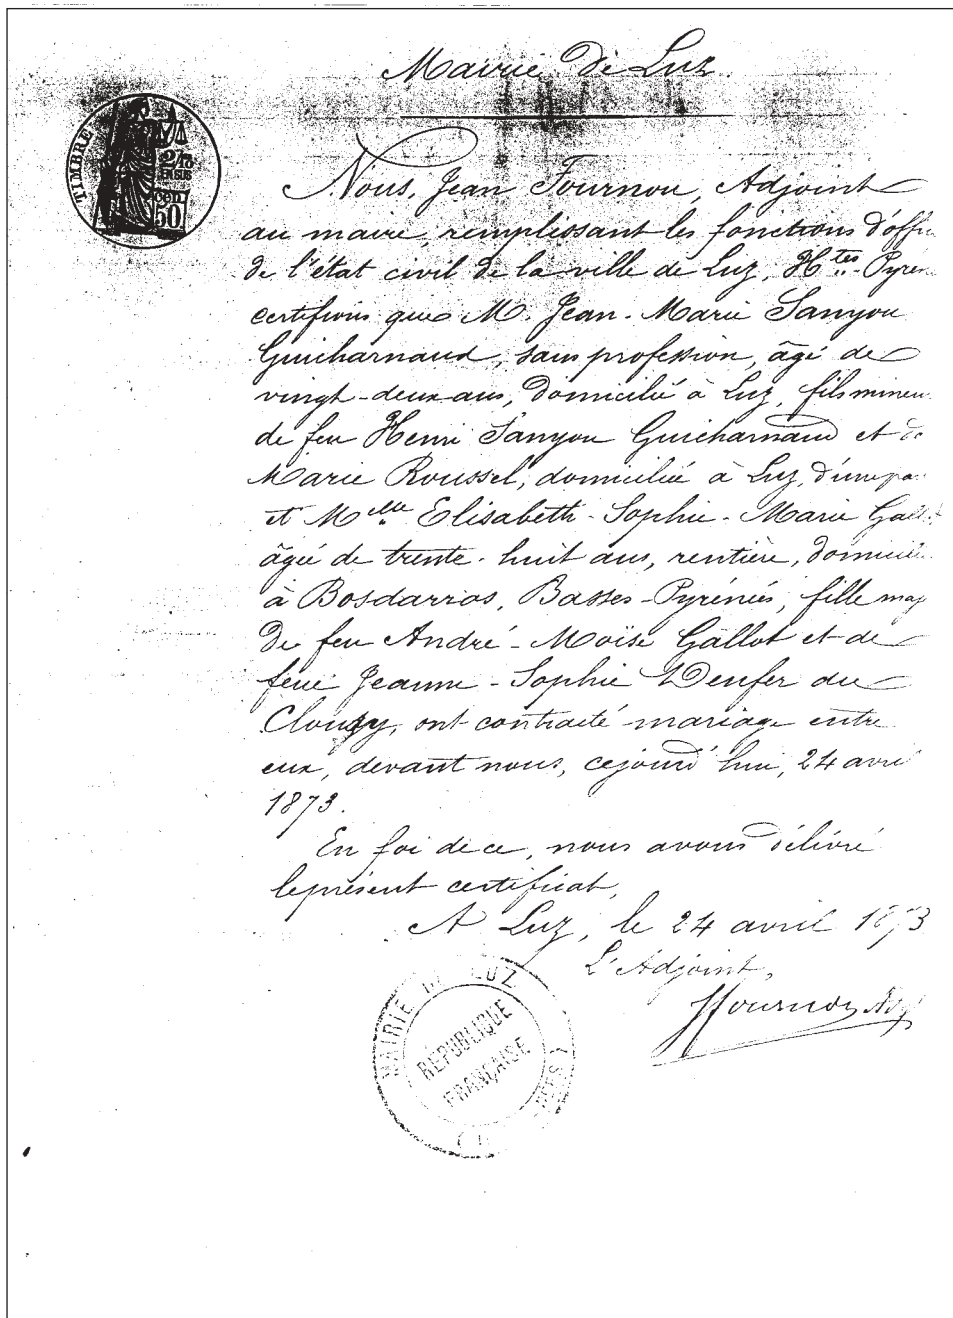 Mairie de Luz
TIMBRE
2/10
EN SUS
CEN.
50
Nous, Jean Fournou, Adjoint
au maire, remplissant les fonctions d'offic
de l'état civil de la ville de Luz, Htes-Pyrén
certifions que M. Jean-Marie Sanyou
Guicharnaud, sans profession, âgé de
vingt-deux ans, domicilié à Luz, fils mineu
de feu Henri Sanyou Guicharnaud et de
Marie Roussel, domiciliée à Luz, d'une pa
et Melle Elisabeth-Sophie-Marie Gallot
âgée de trente-huit ans, rentière, domicilié
à Bosdarros, Basses-Pyrénées, fille maj
de feu André-Moïse Gallot et de
feue Jeanne-Sophie Denfer du
Clouzy, ont contracté mariage entre
eux, devant nous, cejourd'hui, 24 avril
1873.
En foi de ce, nous avons délivré
le présent certificat,
A Luz, le 24 avril 1873
L'Adjoint,
JFournou Adj
MAIRIE DE LUZ
RÉPUBLIQUE
FRANÇAISE